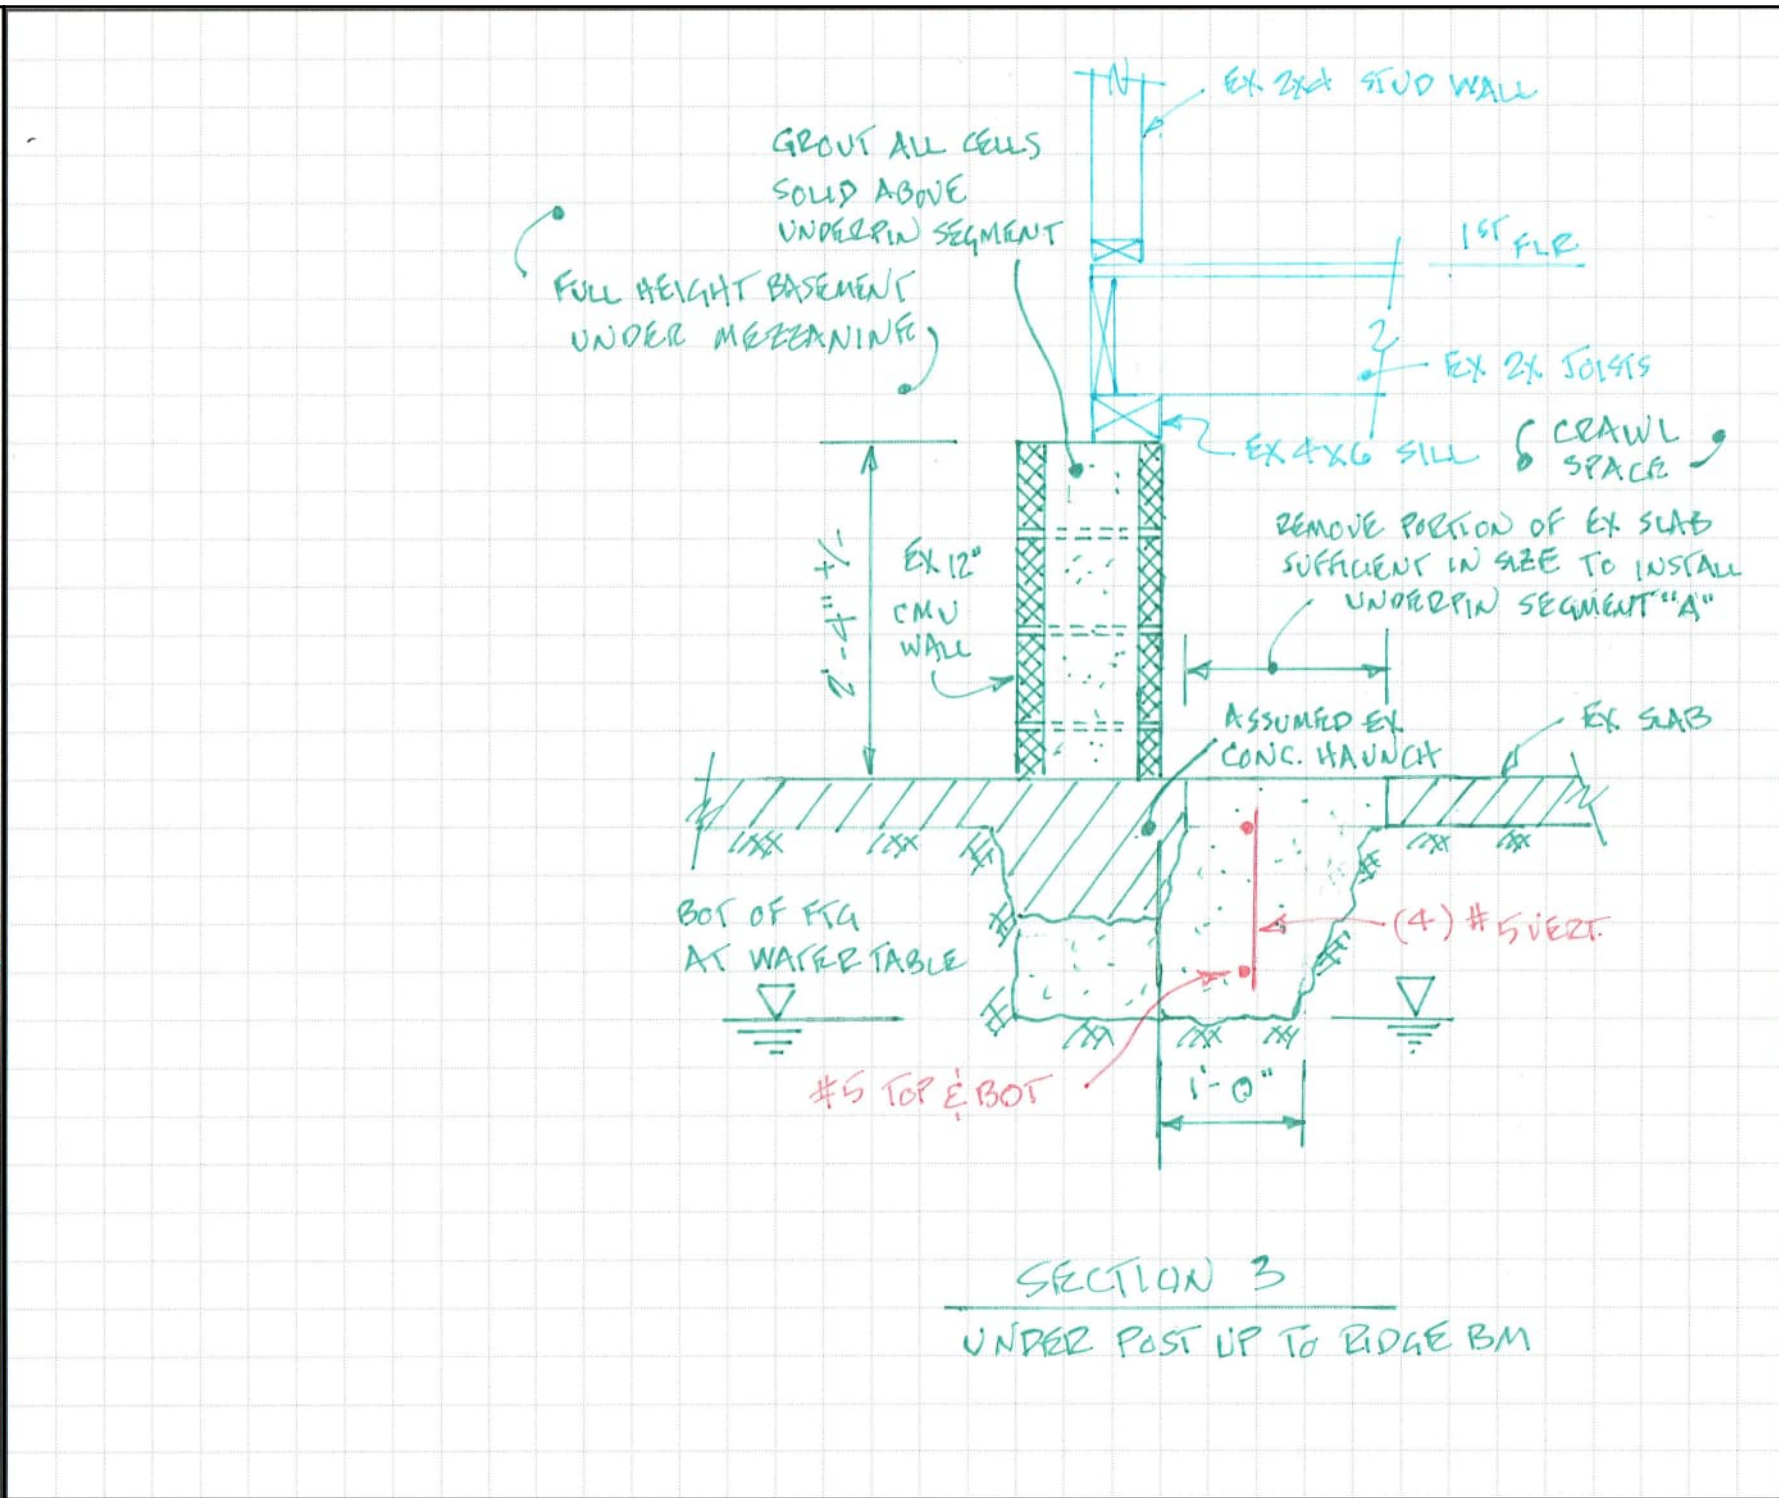 EX 2X4 STUD WALL
GROUT ALL CELLS
SOLID ABOVE
UNDERPIN SEGMENT
1ST FLR
FULL HEIGHT BASEMENT
UNDER MEZZANINE
EX 2X JOISTS
EX 4X6 SILL
CRAWL
SPACE
REMOVE PORTION OF EX SLAB
SUFFICIENT IN SIZE TO INSTALL
UNDERPIN SEGMENT "A"
2'-4" +/-
EX 12"
CMU
WALL
ASSUMED EX.
CONC. HAUNCH
EX. SLAB
BOT OF FTG
AT WATER TABLE
(4) #5 VERT.
#5 TOP & BOT
1'-0"
SECTION 3
UNDER POST UP TO RIDGE BM